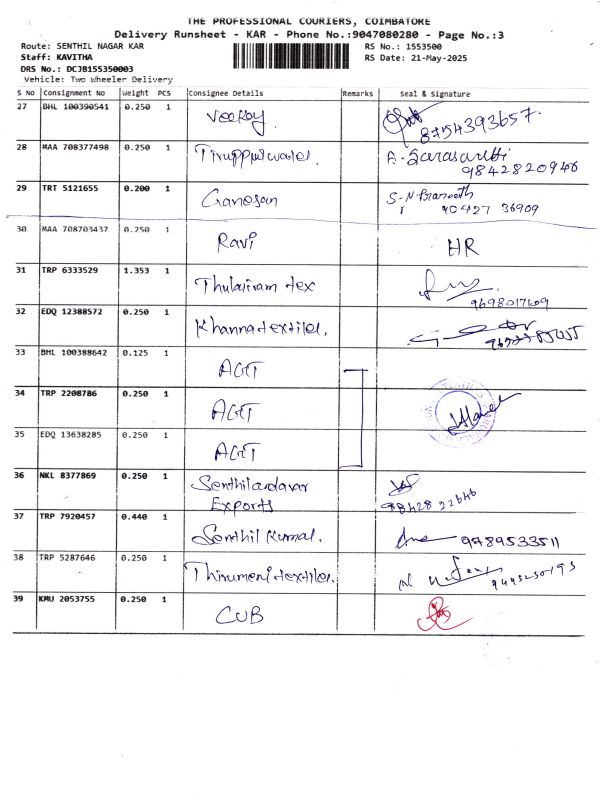 THE PROFESSIONAL COURIERS, COIMBATORE
Delivery Runsheet - KAR - Phone No.:9047080280 - Page No.:3
Route: SENTHIL NAGAR KAR
RS No.: 1553500
Staff: KAVITHA
RS Date: 21-May-2025
DRS No.: DCJB155350003
Vehicle: Two Wheeler Delivery
S No Consignment No Weight PCS Consignee Details Remarks Seal & Signature
27 BHL 100390541 0.250 1 8754393657.
28 MAA 708377498 0.250 1 A. 9842820946
29 TRT 5121655 0.200 1 Ganesan S.N.
30 MAA 708703437 0.250 1 Ravi HR
31 TRP 6333529 1.353 1 Thulairam tex
32 EDQ 12388572 0.250 1 Khanna textiles.
33 BHL 100388642 0.125 1 AGT
34 TRP 2208786 0.250 1 AGT
35 EDQ 13638285 0.250 1 AGT
36 NKL 8377869 0.250 1
Exports
37 TRP 7920457 0.440 1 Senthil Kumar. 9789533511
38 TRP 5287646 0.250 1 Thirumeni textiles.
39 KMU 2053755 0.250 1 CUB